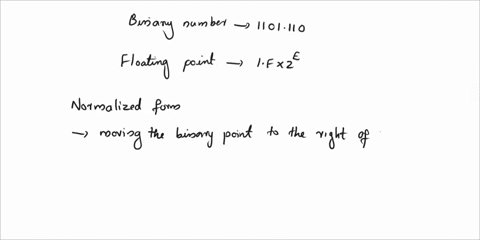 Binary number → 1101.110
Floating point → 1.F × 2^E
Normalized form
→ moving the binary point to the right of